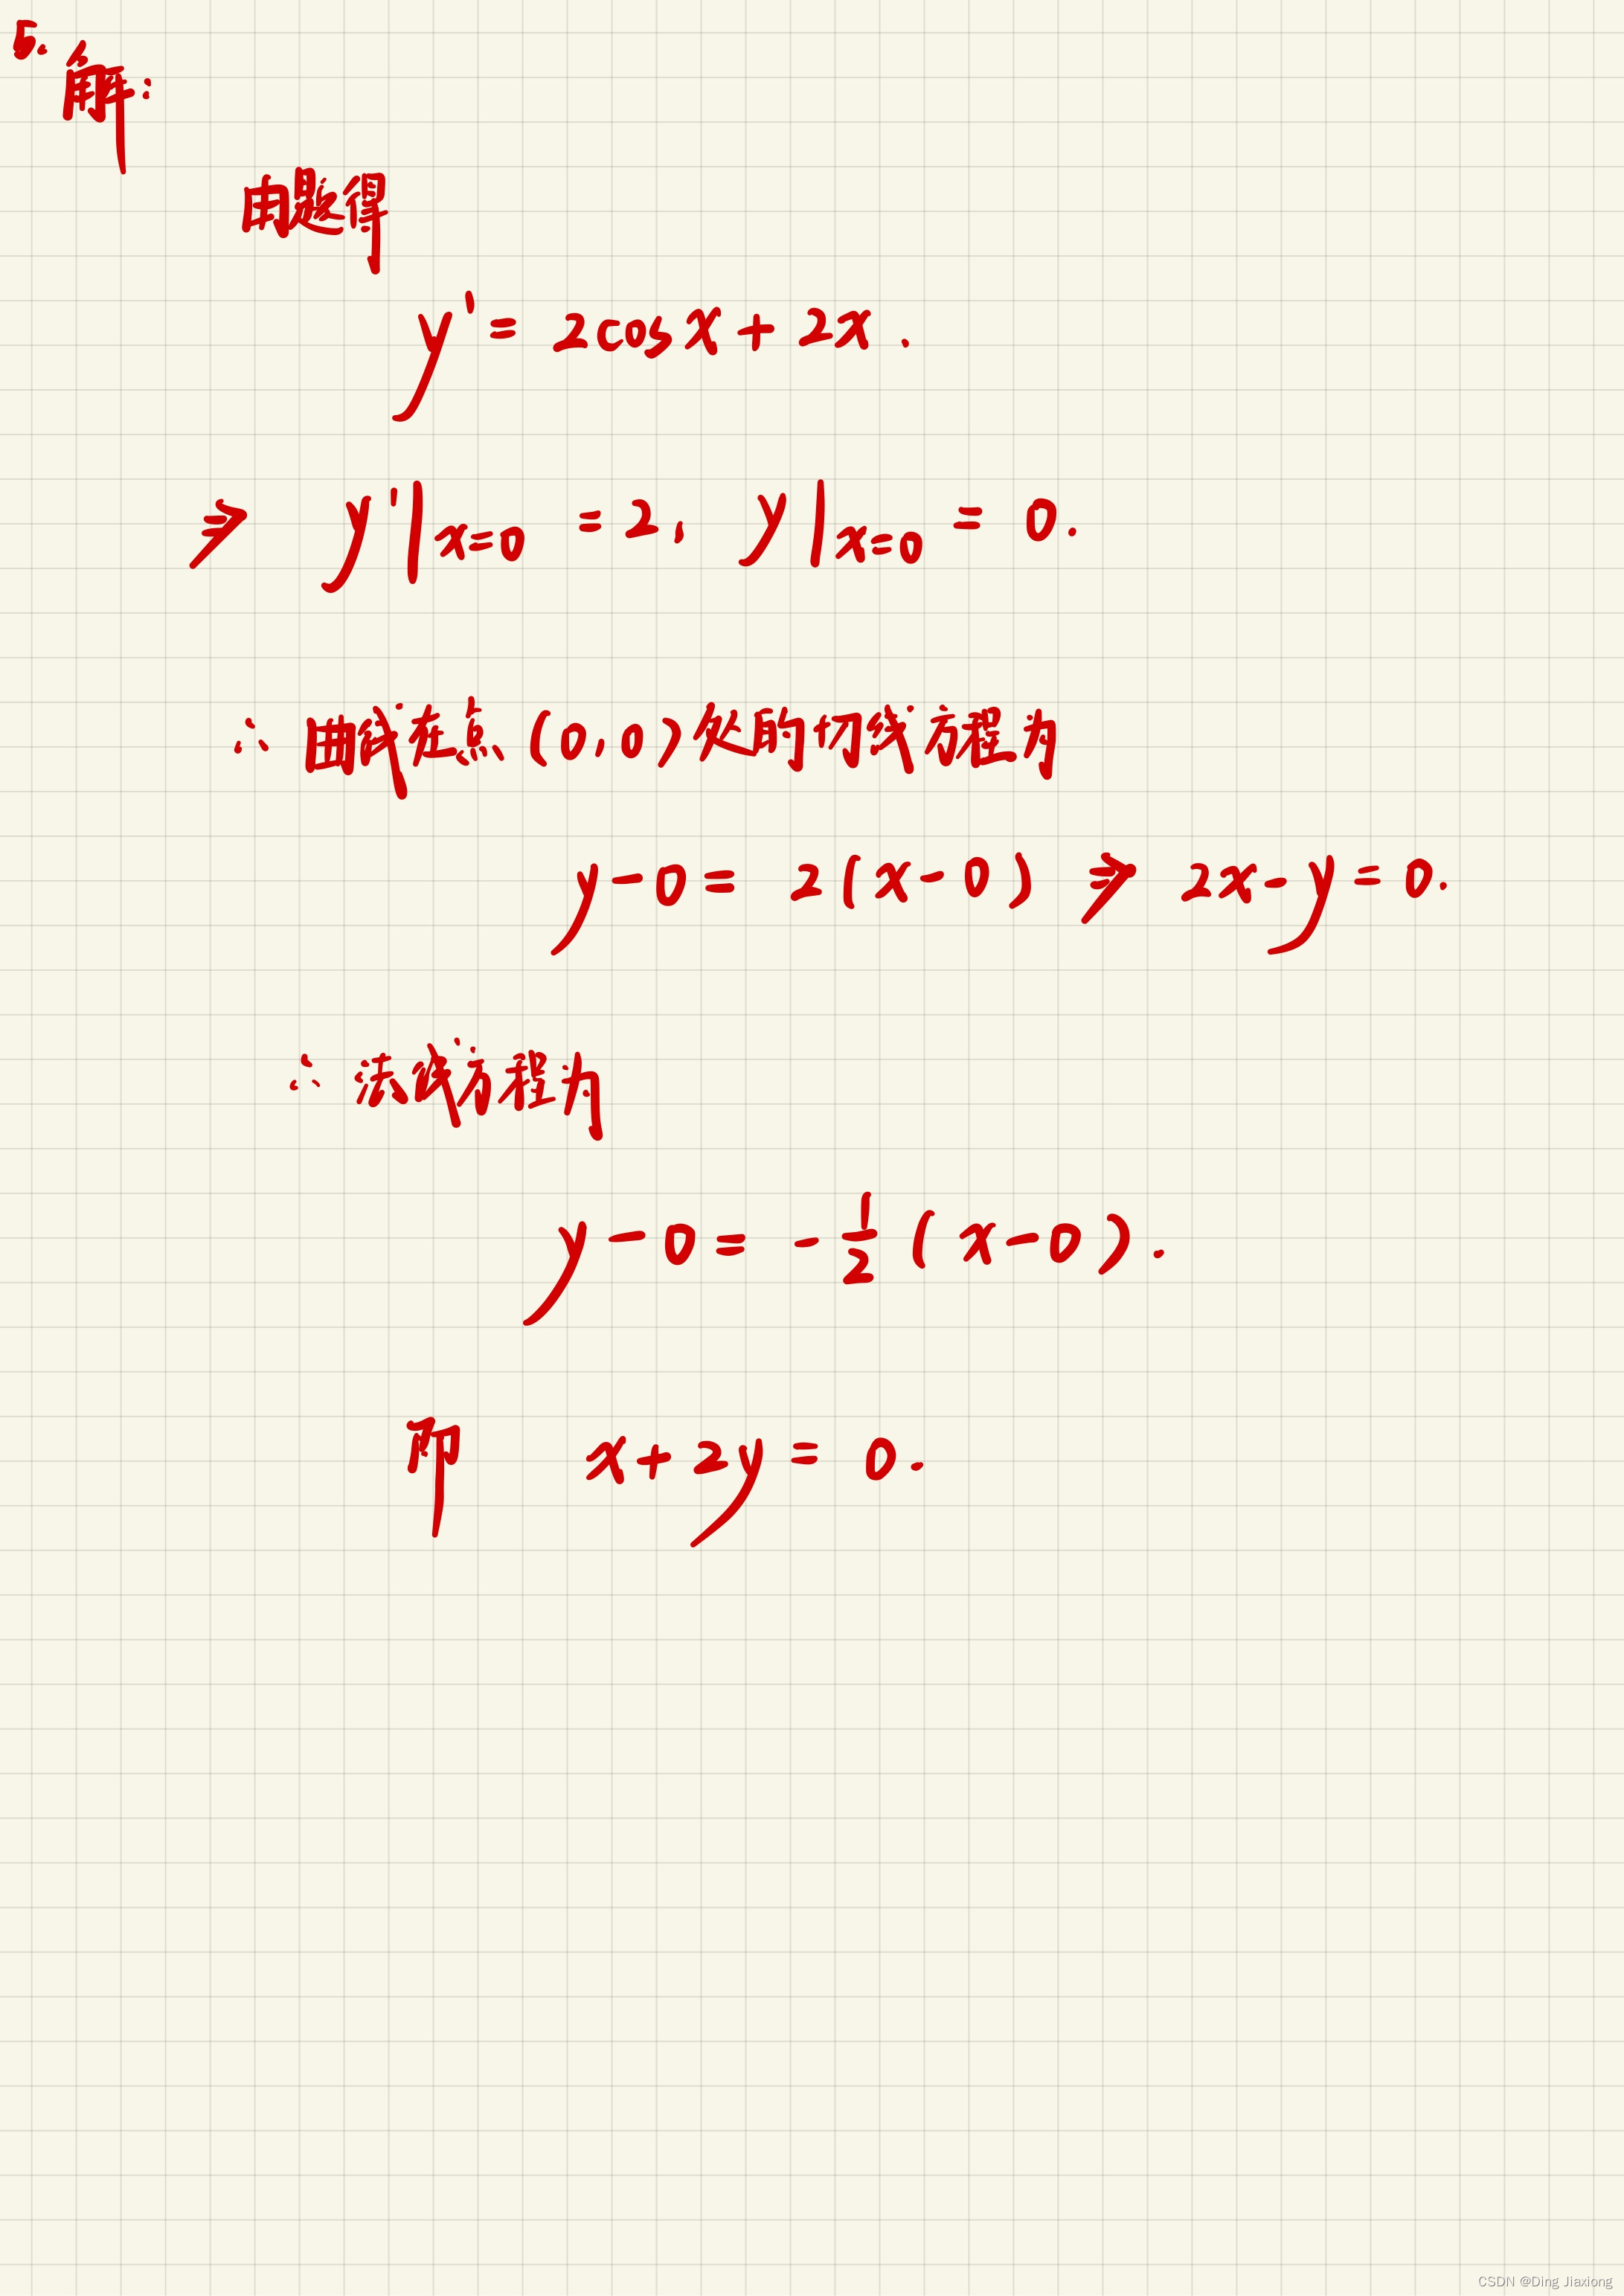 5.
解:
由题得
y' = 2cosx + 2x.
⇒ y'|x=0 = 2, y|x=0 = 0.
∴ 曲线在点(0,0)处的切线方程为
y-0 = 2(x-0) ⇒ 2x-y=0.
∴ 法线方程为
y-0 = -1/2 (x-0).
即 x+2y=0.
CSDN @Ding Jiaxiong